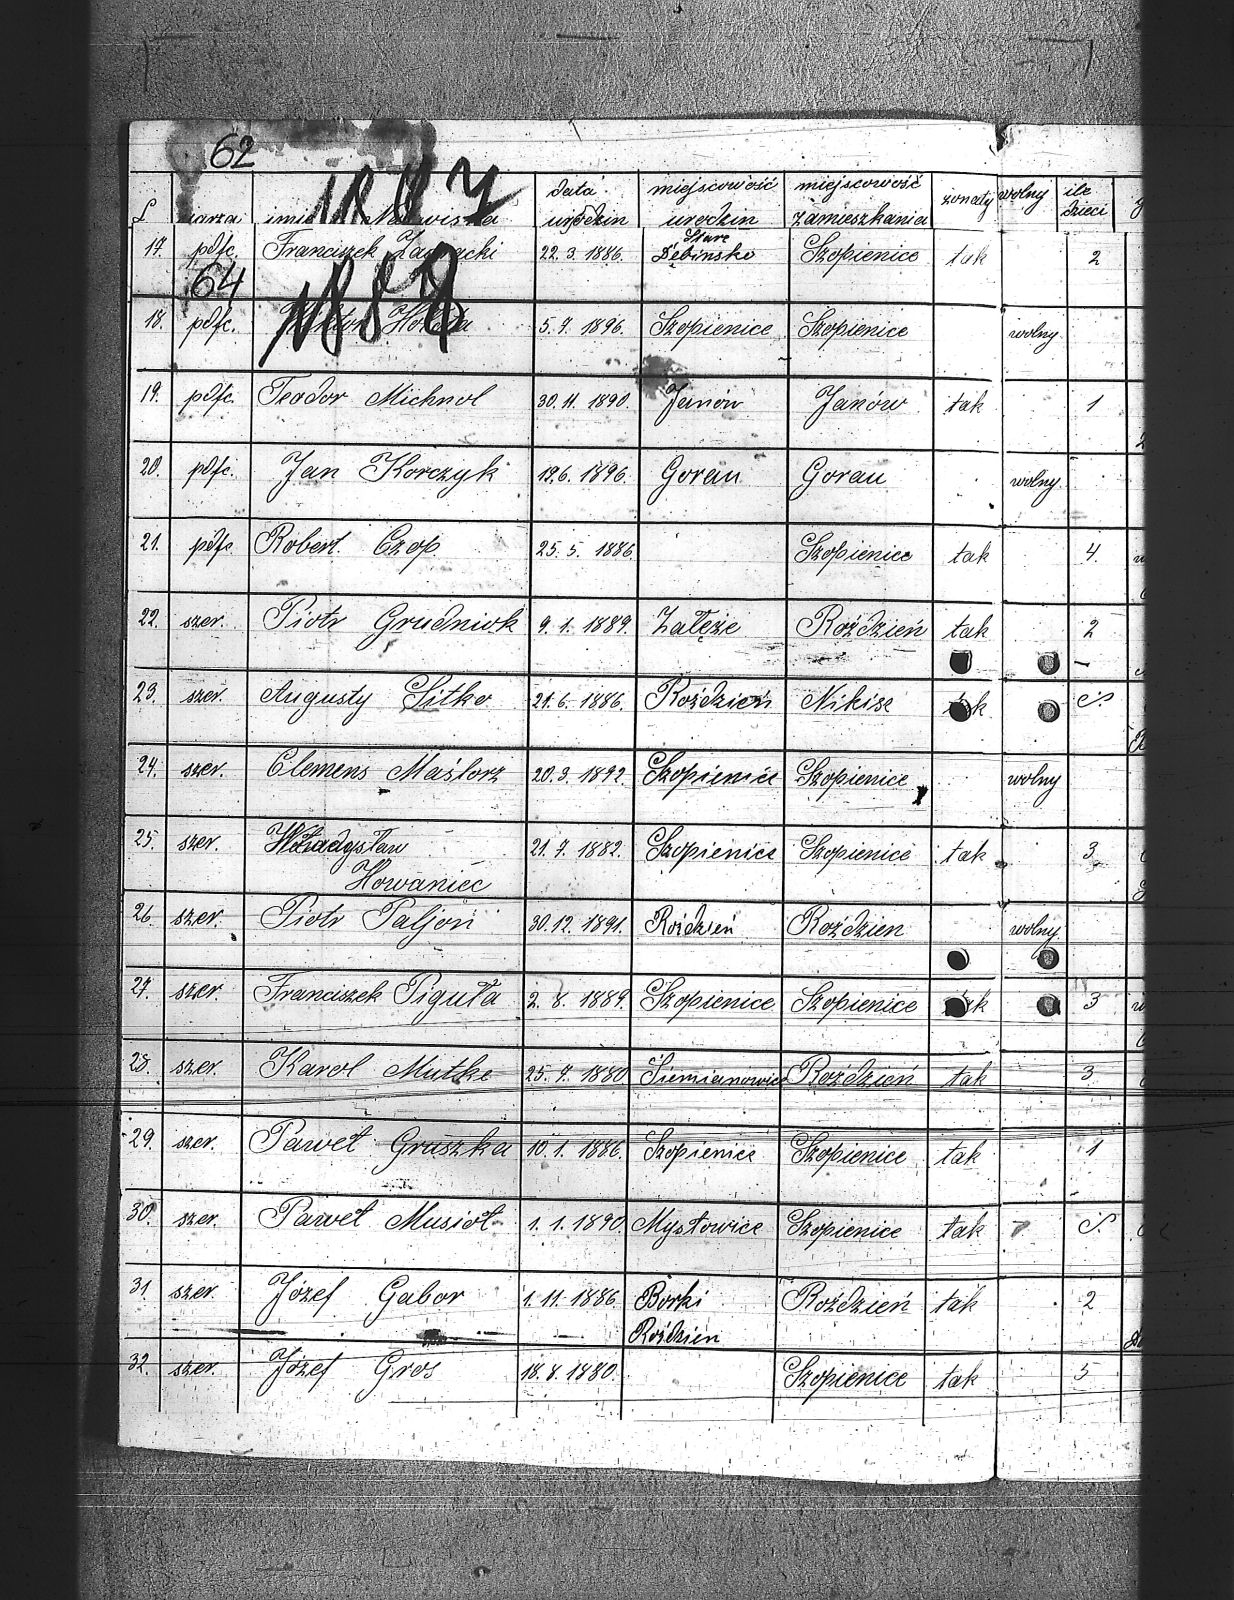 62
1887
data miejscowość miejscowość żonaty wolny ile
urodzin urodzin zamieszkania dzieci
17. pdfc. Franciszek 22. 3. 1886. Stare Dębinsko Szopienice tak 2
64
1888
18. pdfc. 5. 7. 1896. Szopienice Szopienice wolny
19. pdfc. Teodor Michnol 30. 11. 1890. Janów Janów tak 1
20. pdfc. Jan Korczyk 19. 6. 1896. Gorau Gorau wolny.
21. pdfc Robert Czop 25. 5. 1886. Szopienice tak 4.
22. szer. Piotr Grudniok 9. 1. 1889. Załęże Roździeń tak 2
23. szer. Augusty Sitko 21. 6. 1886. Roździeń Nikisz
24. szer. Clemens Maślorz 20. 3. 1892. Szopienice Szopienice wolny
25. szer. Władysław 21. 7. 1882. Szopienice Szopienice tak 3
Howaniec
26. szer. Piotr Paljon 30. 12. 1891. Roździeń Roździen wolny.
27. szer. Franciszek Piguła 2. 8. 1889. Szopienice Szopienice 3
28. szer. Karol Mutke 25. 7. 1880 Siemianowice Roździeń tak 3
29. szer. Paweł Gruszka 10. 1. 1886. Szopienice Szopienice tak 1
30. szer. Paweł Musioł 1. 1. 1890. Mysłowice Szopienice tak
31 szer. Józef Gabor 1. 11. 1886. Borki Roździeń tak 2
Roździen
32. szer. Józef Gros 18. 8. 1880. Szopienice tak 5